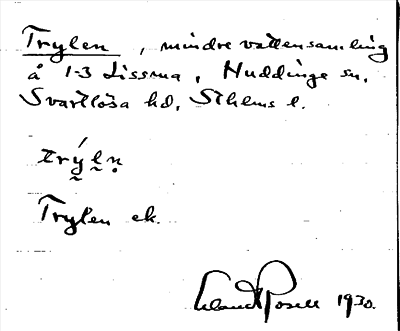 Trylen, mindre vattensamling
å 1-3 Lissma, Huddinge sn,
Svartlösa hd, Sthlms l.
trýlṇ
Trylen ek.
1930.